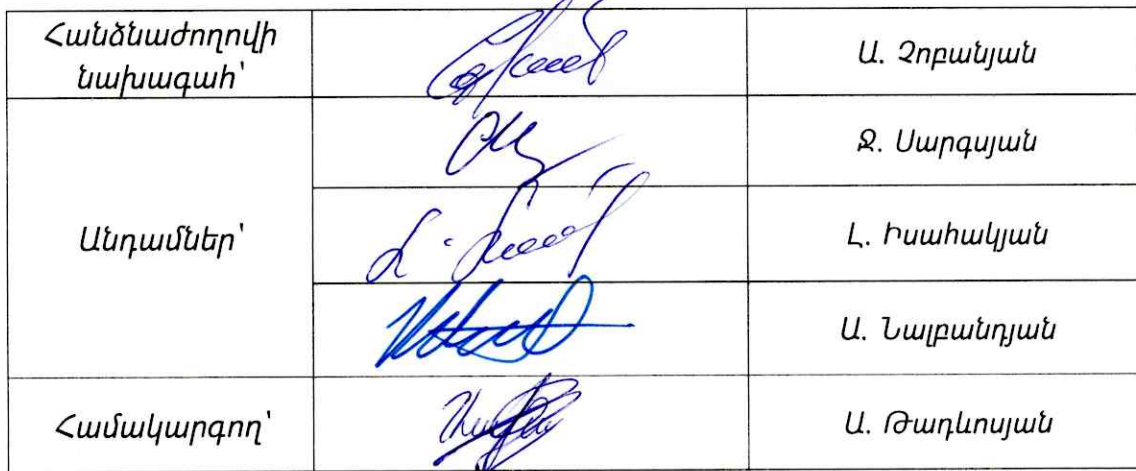 Հանձնաժողովի
նախագահ՝
Ա. Չոբանյան
Անդամներ՝
Ջ. Սարգսյան
Լ. Իսահակյան
Ա. Նալբանդյան
Համակարգող՝
Ա. Թադևոսյան